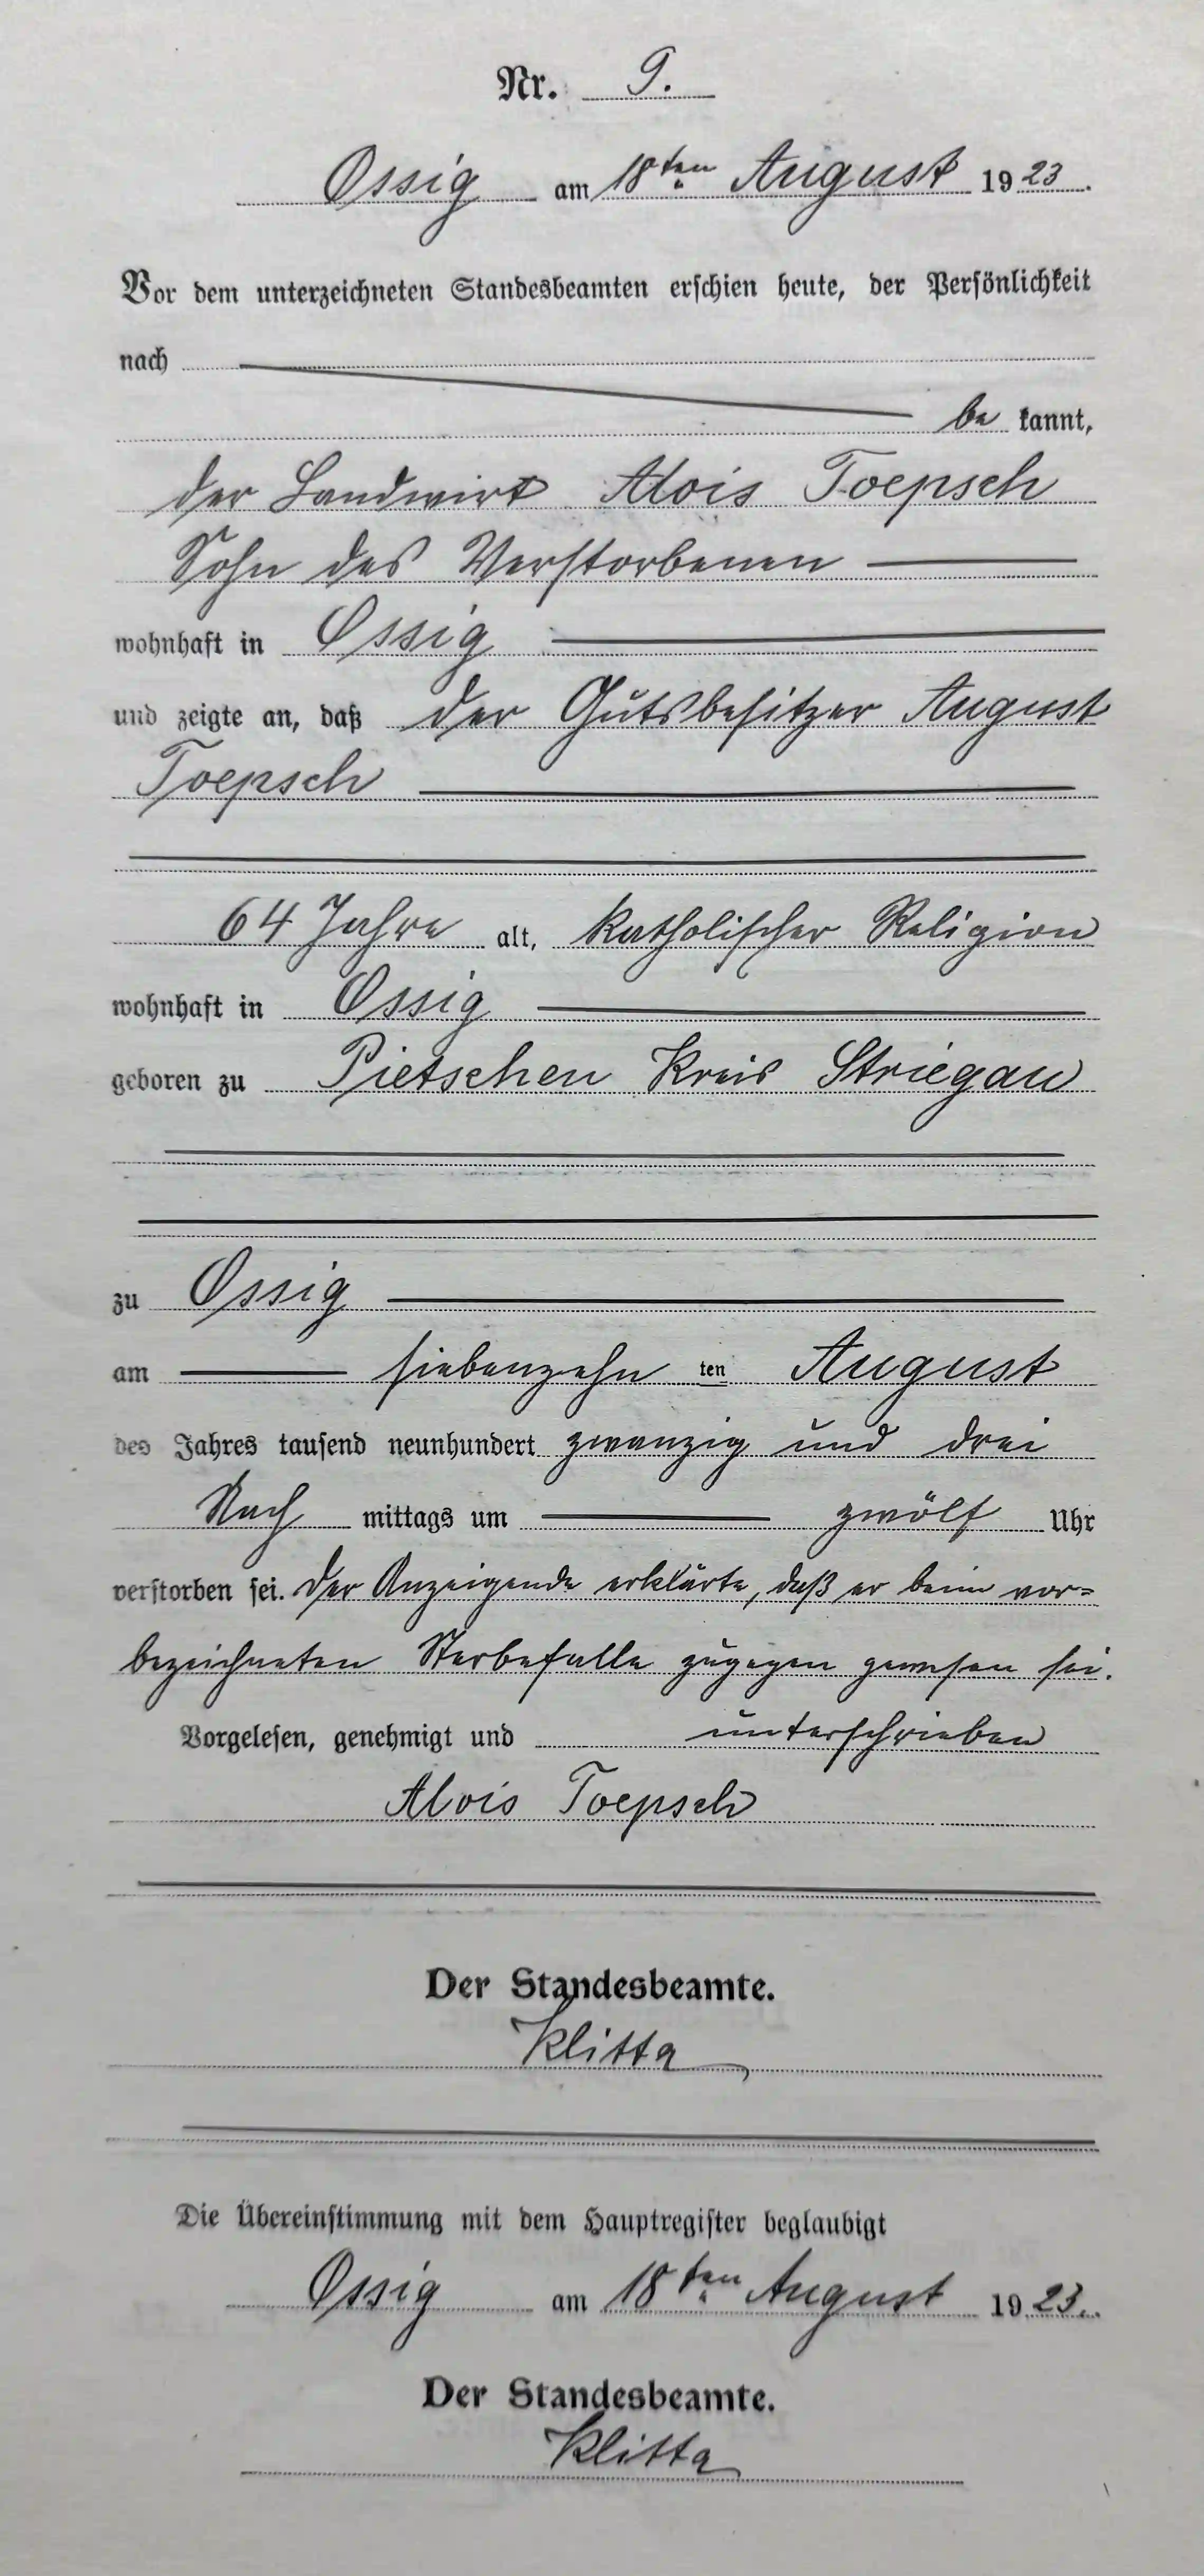 Nr. 9.
Ossig am 18ten August 1923.
Vor dem unterzeichneten Standesbeamten erschien heute, der Persönlichkeit
nach
be kannt,
der Landwirt Alois Toepsch
Sohn des Verstorbenen
wohnhaft in Ossig
und zeigte an, daß der Gutsbesitzer August
Toepsch
64 Jahre alt, katholischer Religion
wohnhaft in Ossig
geboren zu Pietschen Kreis Striegau
zu Ossig
am siebenzehn ten August
des Jahres tausend neunhundert zwanzig und drei
Nach mittags um zwölf Uhr
verstorben sei. Der Anzeigende erklärte, daß er beim vor=
bezeichneten Sterbefalle zugegen gewesen sei.
Vorgelesen, genehmigt und unterschrieben
Alois Toepsch
Der Standesbeamte.
Klitta
Die Übereinstimmung mit dem Hauptregister beglaubigt
Ossig am 18ten August 1923.
Der Standesbeamte.
Klitta